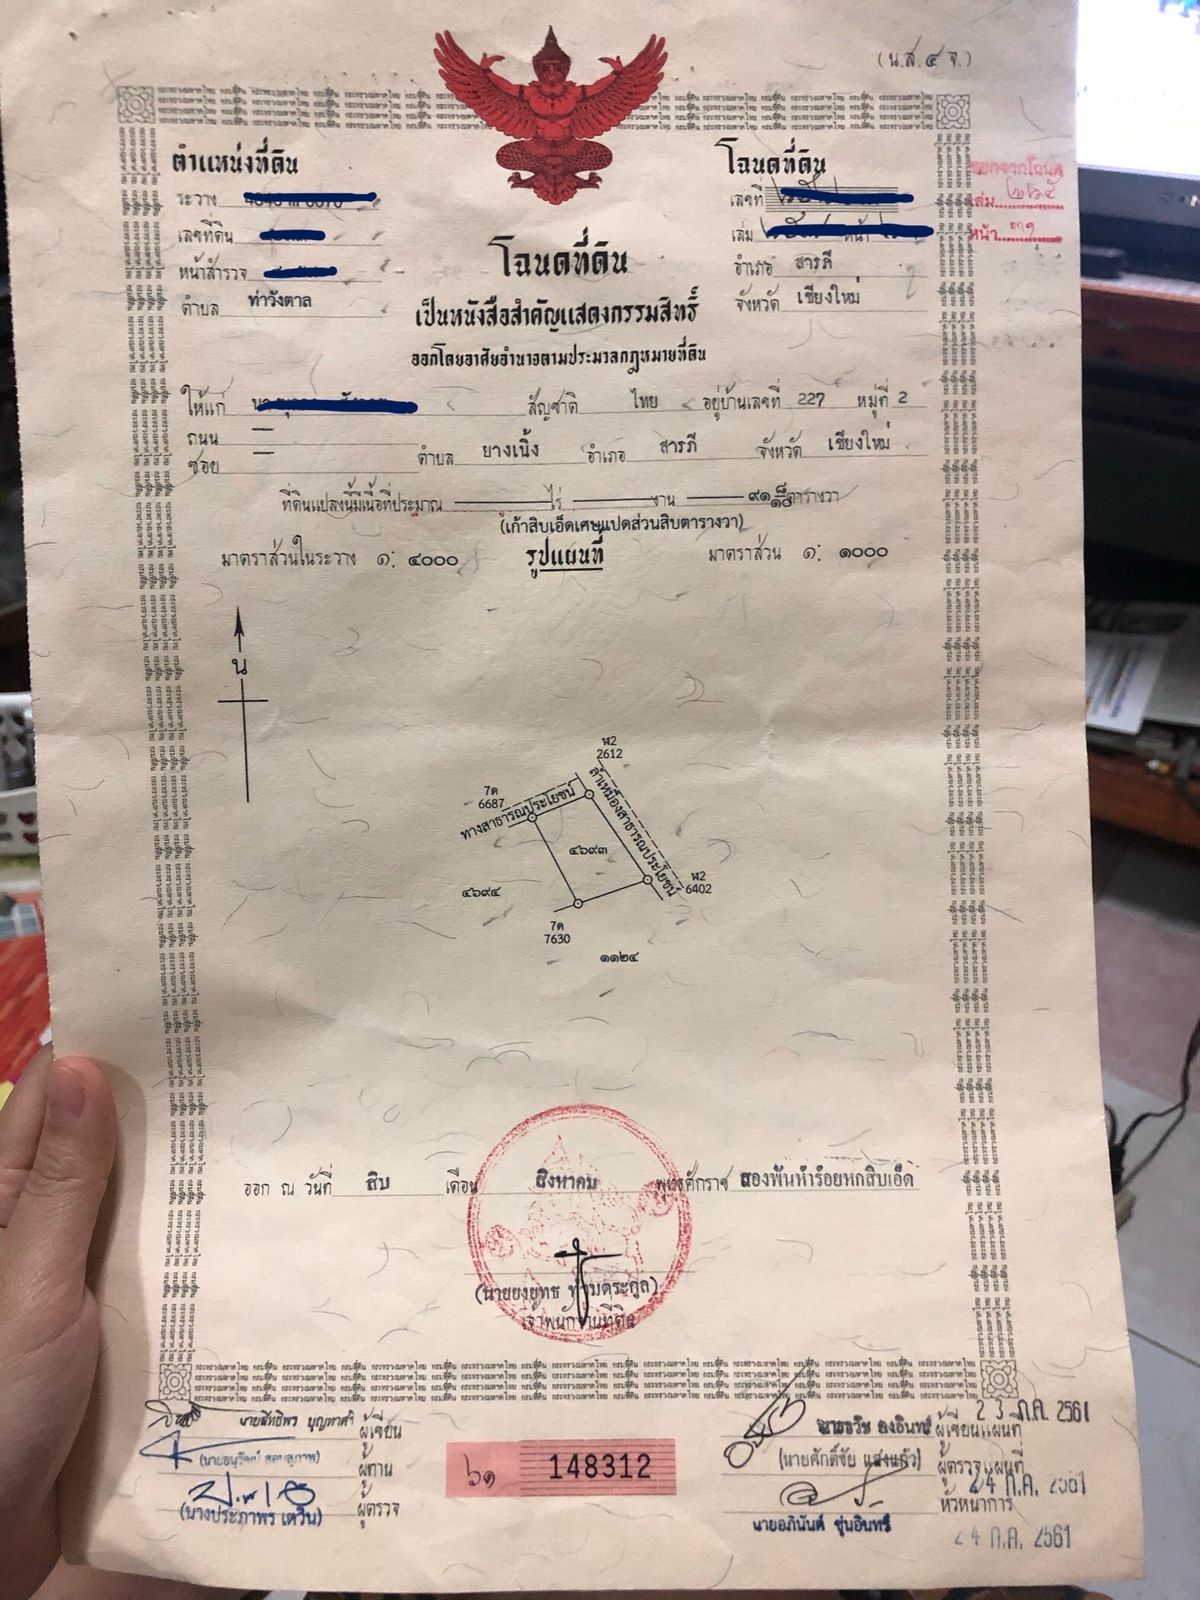 (น.ส.๔ จ.)
ตำแหน่งที่ดิน
โฉนดที่ดิน
ออกจากโฉนด
ระวาง
เลขที่
เล่ม ๒๖๕
เลขที่ดิน
เล่ม หน้า
หน้า
หน้าสำรวจ
โฉนดที่ดิน
อำเภอ สารภี
ตำบล ท่าวังตาล
เป็นหนังสือสำคัญแสดงกรรมสิทธิ์
จังหวัด เชียงใหม่
ออกโดยอาศัยอำนาจตามประมวลกฎหมายที่ดิน
ให้แก่ สัญชาติ ไทย อยู่บ้านเลขที่ 227 หมู่ที่ 2
ถนน —
ซอย — ตำบล ยางเนิ้ง อำเภอ สารภี จังหวัด เชียงใหม่
ที่ดินแปลงนี้มีเนื้อที่ประมาณ — ไร่ — งาน — ๙๑ ๘/๑๐ ตารางวา
(เก้าสิบเอ็ดเศษแปดส่วนสิบตารางวา)
มาตราส่วนในระวาง ๑: ๔๐๐๐ รูปแผนที่ มาตราส่วน ๑: ๑๐๐๐
น
ฬ2
2612
7ด
6687
ทางสาธารณประโยชน์
ลำเหมืองสาธารณประโยชน์
๔๖๙๓
๔๖๙๔
ฬ2
6402
7ด
7630
๑๑๒๔
ออก ณ วันที่ สิบ เดือน สิงหาคม พุทธศักราช สองพันห้าร้อยหกสิบเอ็ด
เจ้าพนักงานที่ดิน
นายสิทธิพร บุญทาศรี ผู้เขียน
(นายอนุวัฒน์ สอนสุภาพ) ผู้ทาน
(นางประภาพร เตวิน) ผู้ตรวจ
๖๑ 148312
ผู้เขียนแผนที่ 23 ก.ค. 2561
(นายศักดิ์ชัย แสงแก้ว) ผู้ตรวจแผนที่
24 ก.ค. 2561
หัวหน้าการ
นายอภินันต์ ชุ่นอินทร์
24 ก.ค. 2561